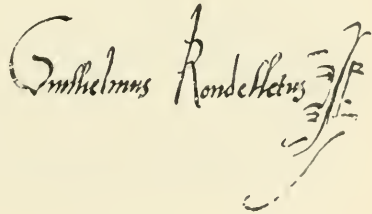 Guilhelmus Rondelletus